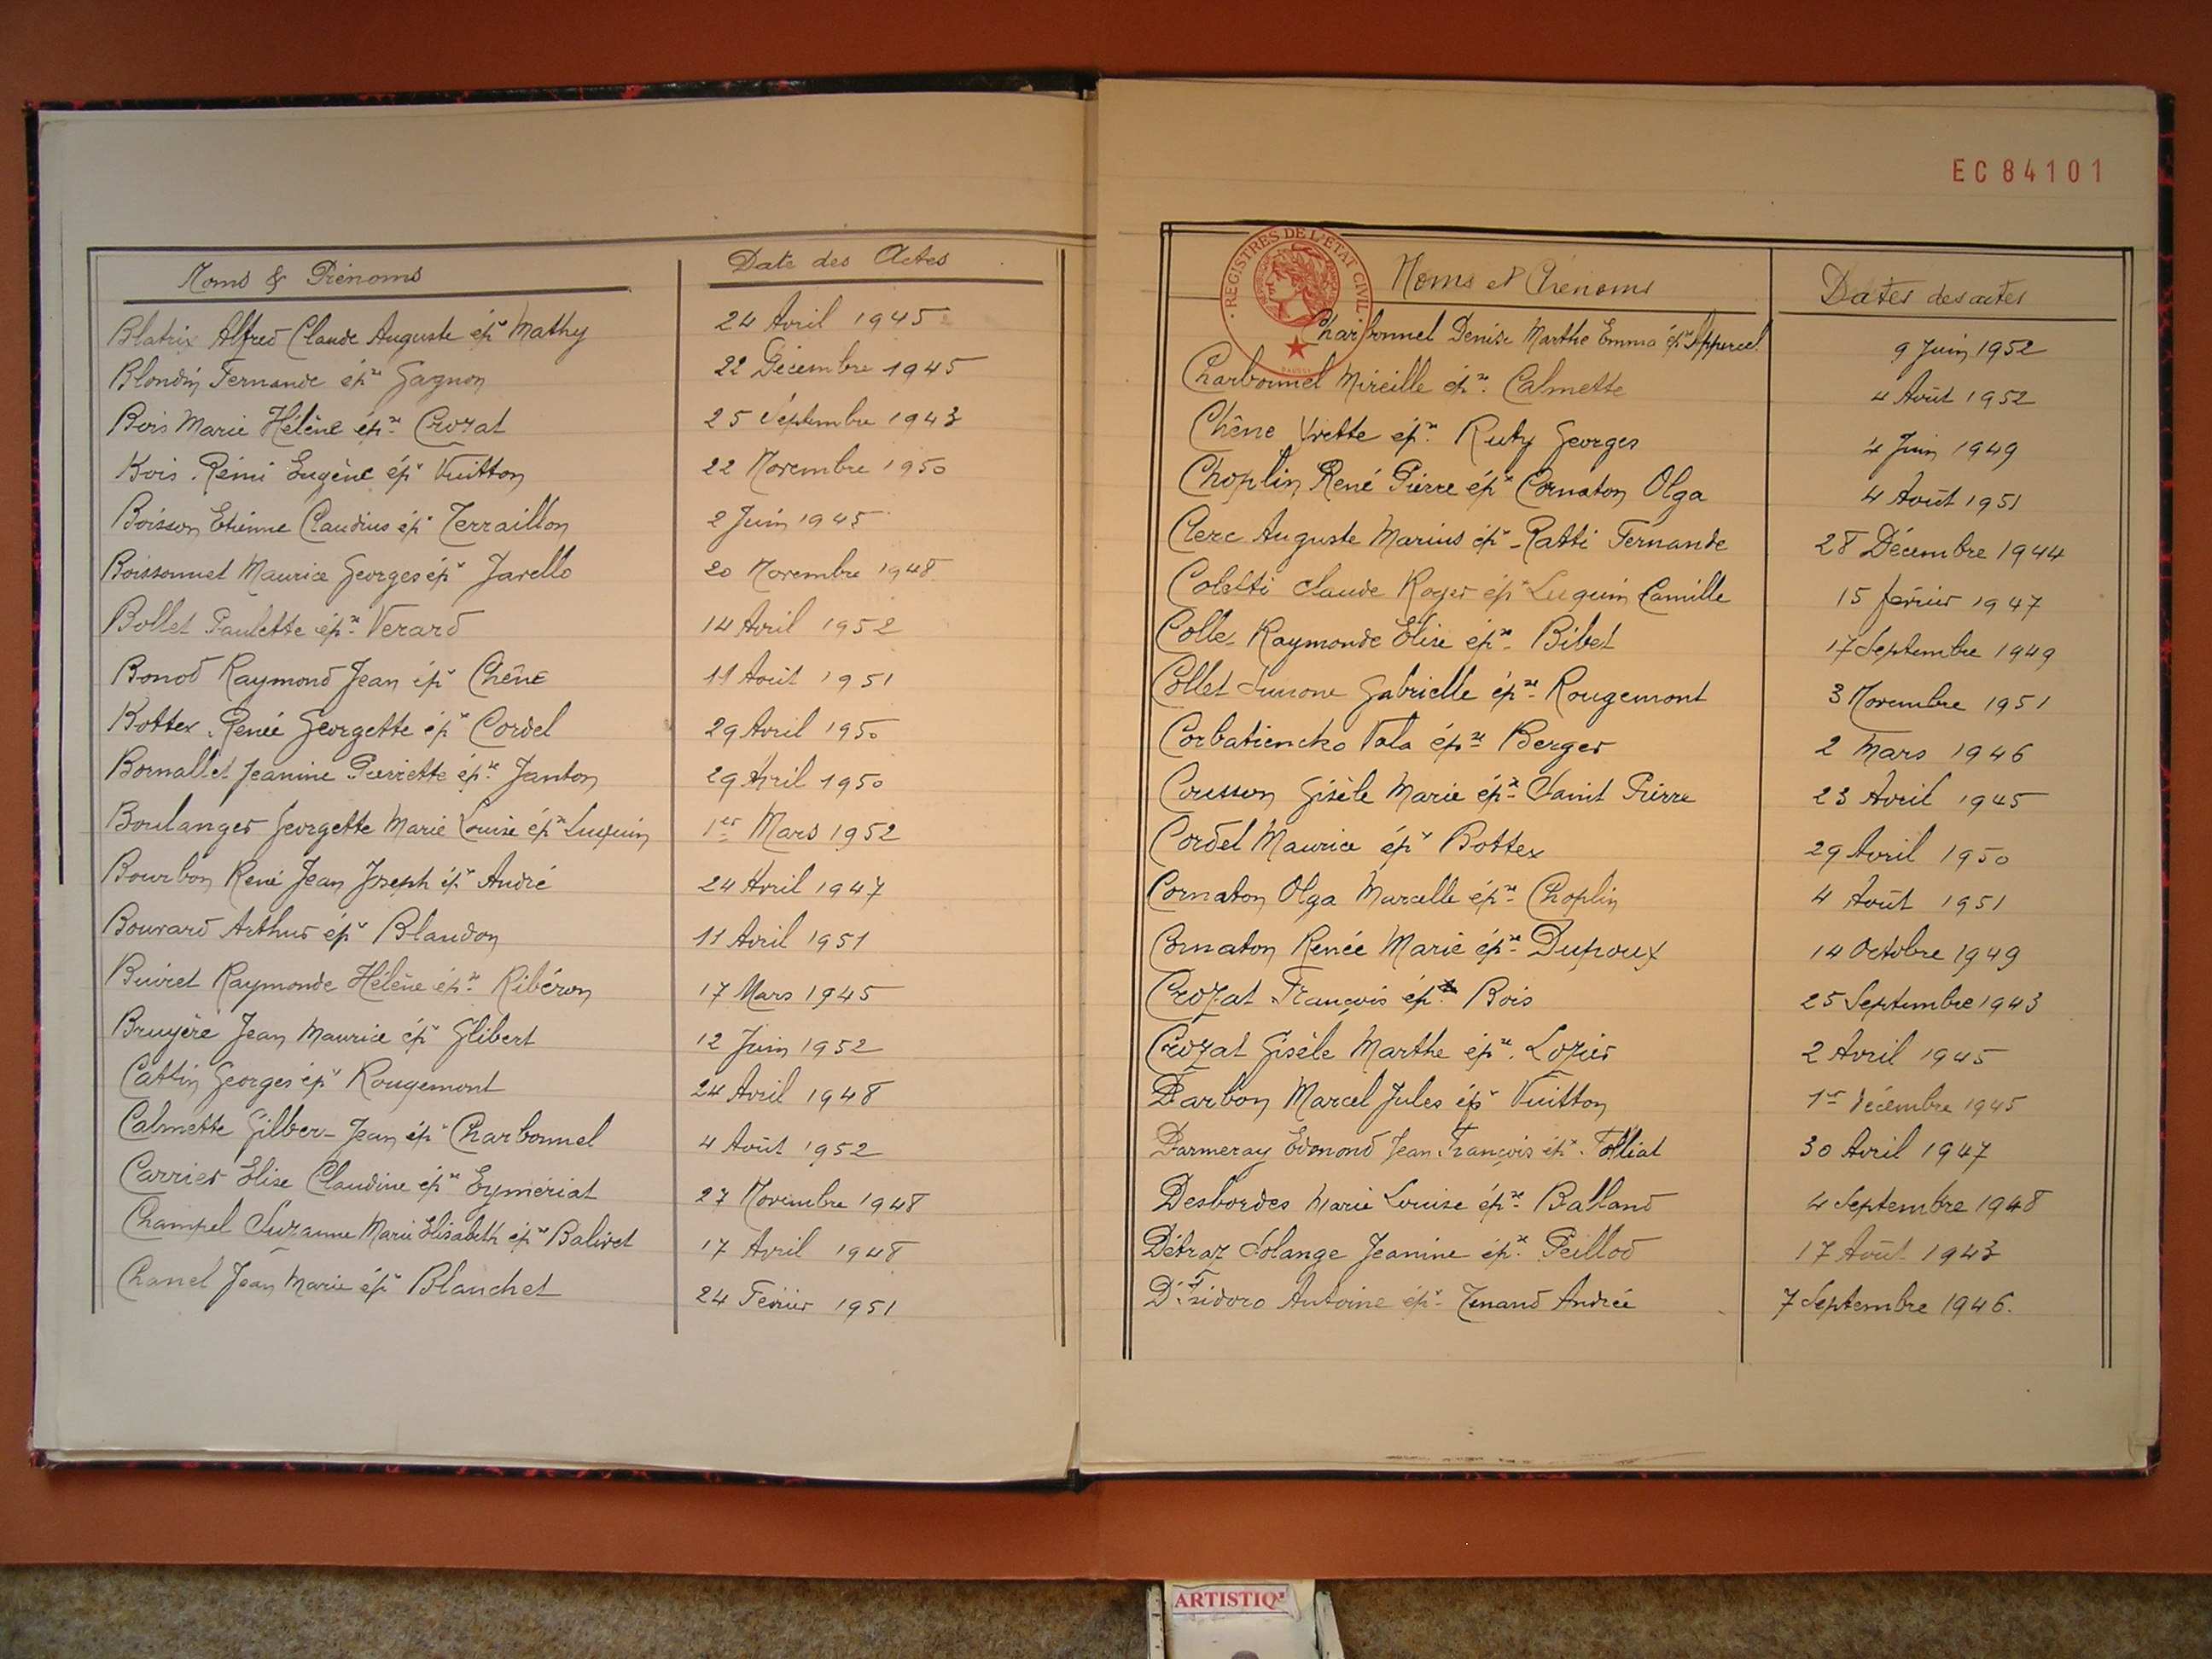 Noms & Prénoms Date des Actes
Blatrix Alfred Claude Auguste épx Mathy 24 Avril 1945
Blondin Fernande épse Gagnon 22 Décembre 1945
Bois Marie Hélène épse Crozat 25 Septembre 1943
Bois Rémi Eugène épx Vuitton 22 Novembre 1950
Boisson Etienne Claudius épx Terraillon 2 Juin 1945
Boissonnet Maurice Georges épx Jarello 20 Novembre 1948
Bollet Paulette épse Verard 14 Avril 1952
Bonod Raymond Jean épx Chêne 11 Août 1951
Bottex Renée Georgette épx Cordel 29 Avril 1950
Bornallet Jeanine Pierrette épse Janton 29 Avril 1950
Boulanger Georgette Marie Louise épse Luquin 1er Mars 1952
Bourbon René Jean Joseph épx André 24 Avril 1947
Bouvard Arthur épx Blandon 11 Avril 1951
Buiret Raymonde Hélène épse Ribéron 17 Mars 1945
Bruyère Jean Maurice épx Glibert 12 Juin 1952
Cattin Georges épx Rougemont 24 Avril 1948
Calmette Gilber- Jean épx Charbonnel 4 Août 1952
Carrier Elise Claudine épse Eymériat 27 Novembre 1948
Champel Suzanne Marie Elisabeth épse Balivet 17 Avril 1948
Chanel Jean Marie épx Blanchet 24 Février 1951
EC84101
REGISTRES DE L'ETAT CIVIL
Noms et Prénoms Dates des actes
Charbonnel Denise Marthe Emma épse 9 Juin 1952
Charbonnel Mireille épse Calmette 4 Août 1952
Chêne Yvette épse Ruty Georges 4 Juin 1949
Choplin René Pierre épx Cornaton Olga 4 Août 1951
Clerc Auguste Marius épx Ratti Fernande 28 Décembre 1944
Coletti Claude Roger épx Luquin Camille 15 février 1947
Colle- Raymonde Elise épse Bibet 17 Septembre 1949
Collet Simone Gabrielle épse Rougemont 3 Novembre 1951
Corbatiencko Vala épse Berger 2 Mars 1946
Cousson Gisèle Marie épse Saint Pierre 23 Avril 1945
Cordel Maurice épx Bottex 29 Avril 1950
Cornaton Olga Marcelle épse Choplin 4 Août 1951
Cornaton Renée Marie épse Dupoux 14 Octobre 1949
Crozat François épx Bois 25 Septembre 1943
Crozat Gisèle Marthe épse Lozier 2 Avril 1945
Darbon Marcel Jules épx Vuitton 1er décembre 1945
Darmeray Edmond Jean François épx Folliat 30 Avril 1947
Desbordes Marie Louise épse Balland 4 Septembre 1948
Détraz Solange Jeanine épse Peillod 17 Août 1943
Di Isidoro Antoine épx Tenand Andrée 7 Septembre 1946.
ARTISTIQ